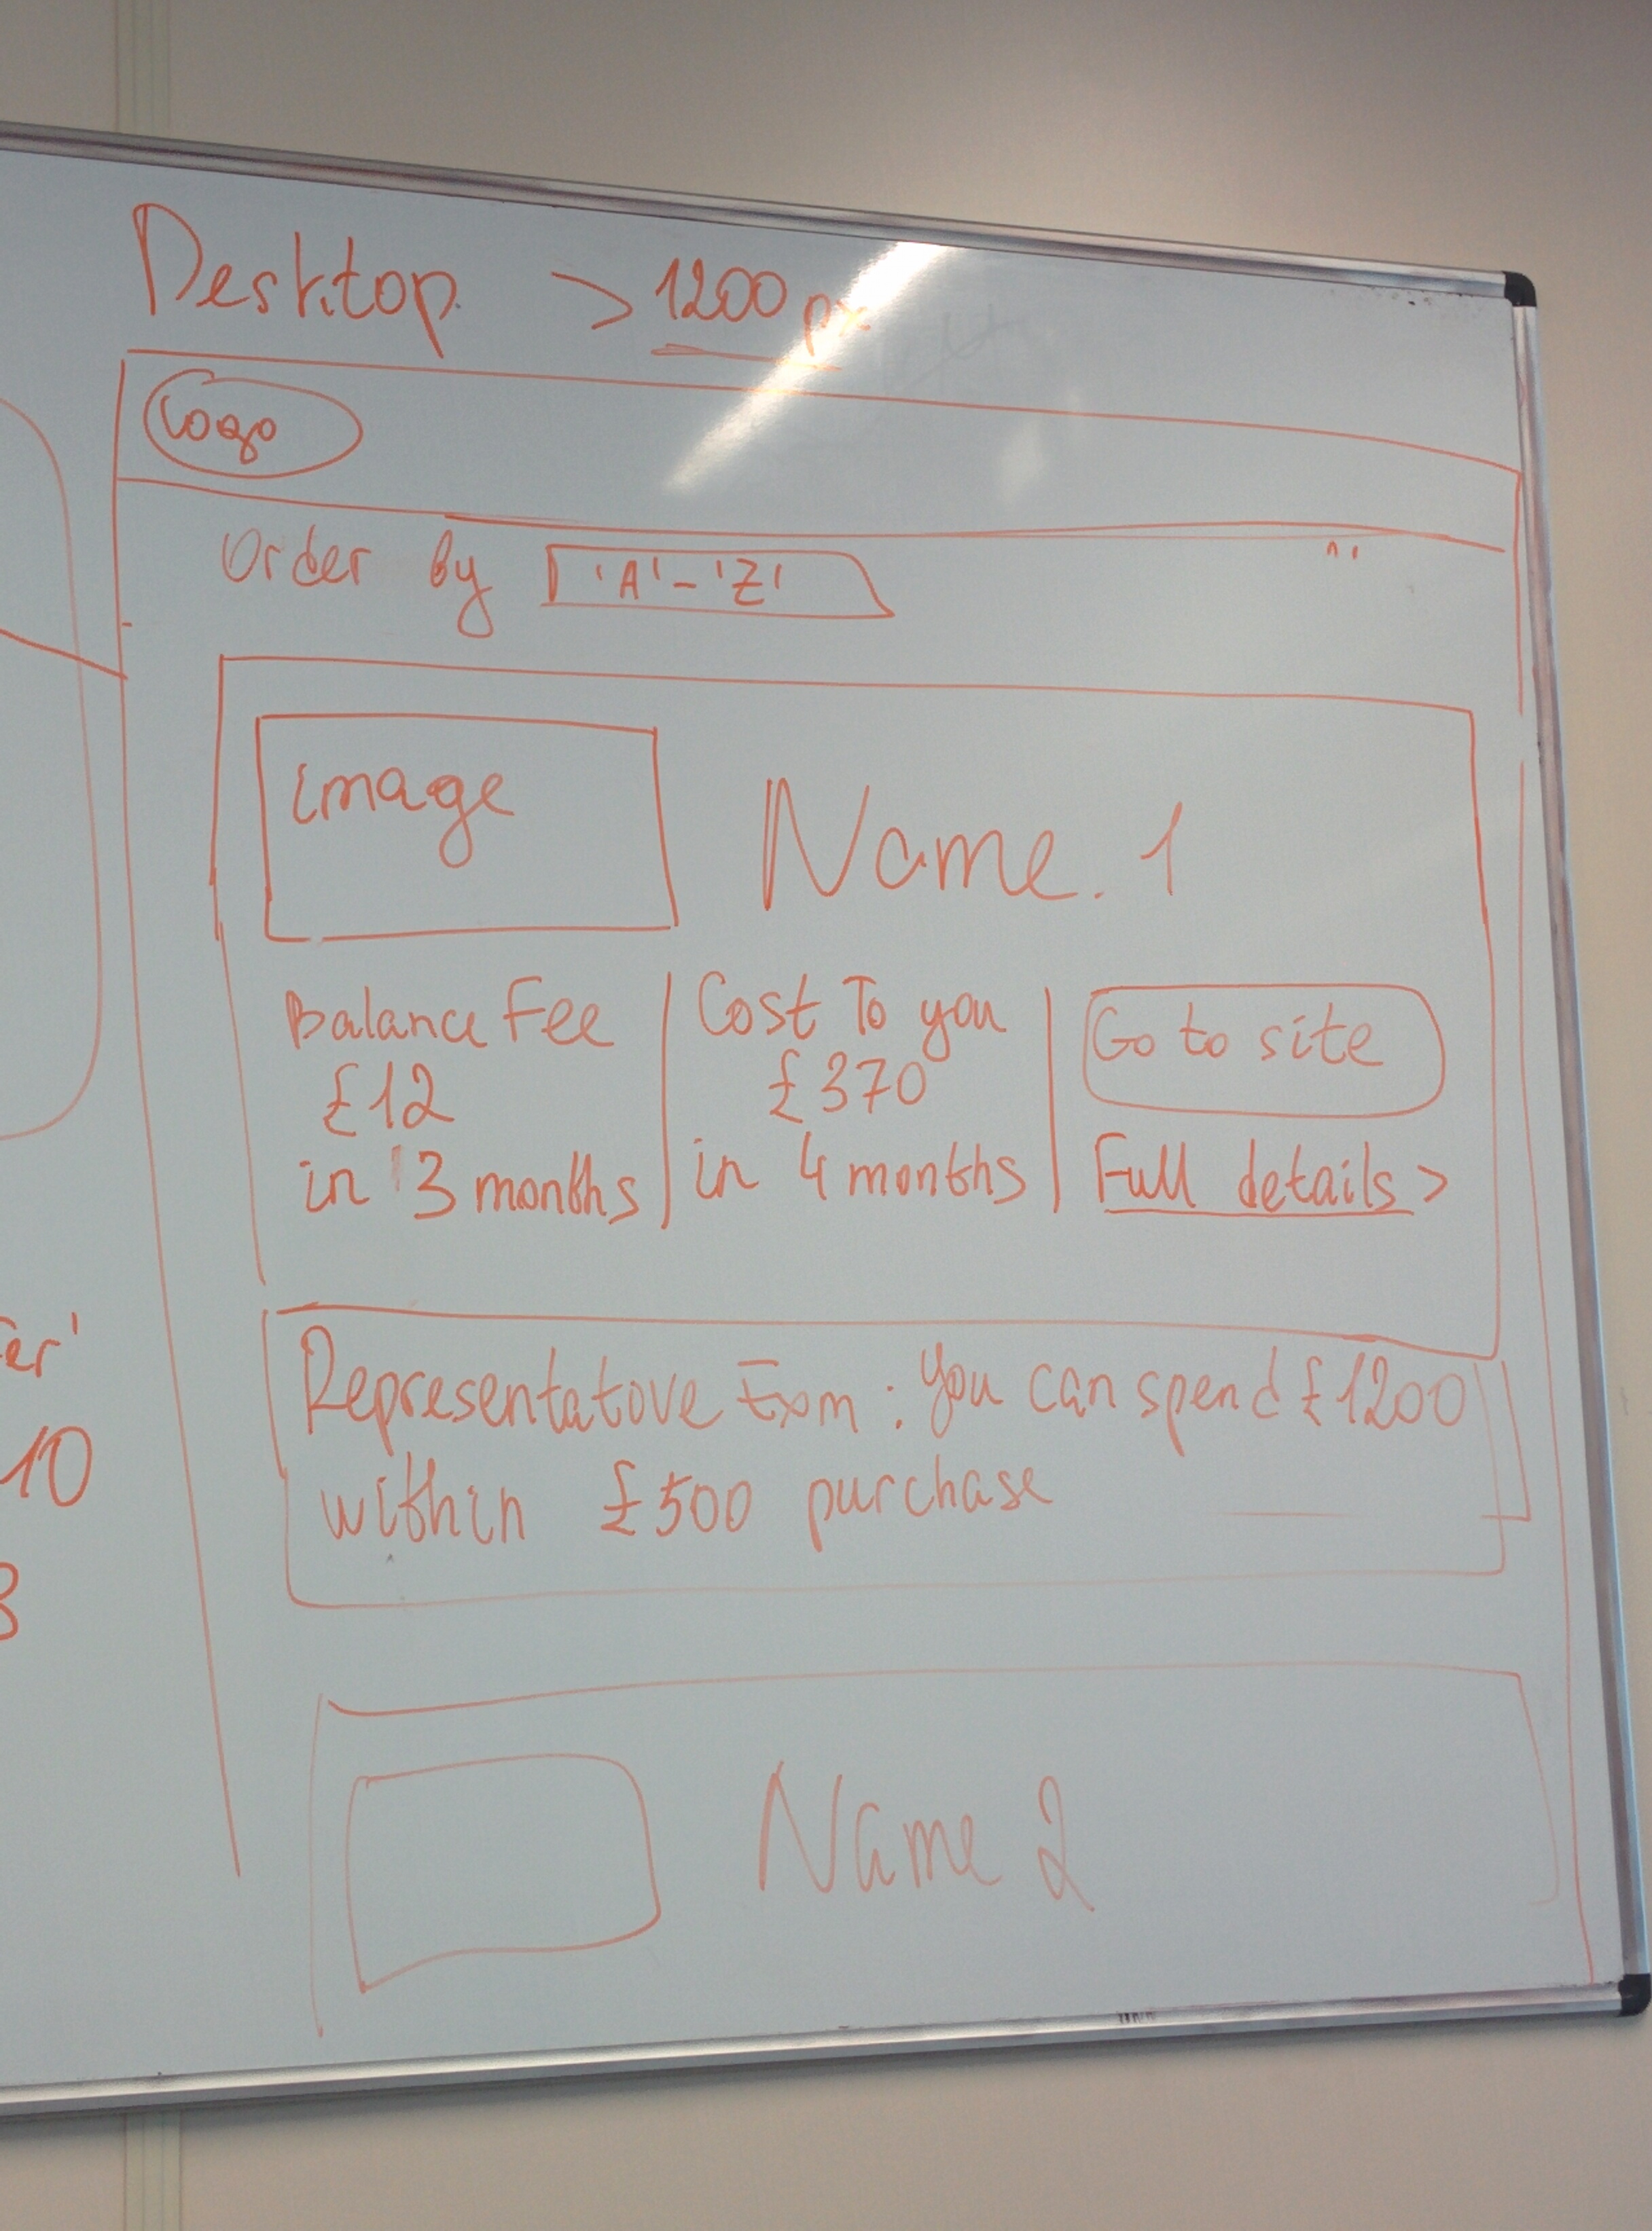 Desktop > 1200 px
Logo
Order by 'A'-'Z'
image
Name. 1
Balance Fee
£12
in 3 months
Cost To you
£370
in 4 months
Go to site
Full details >
Representatove Exam : you can spend £1200
within £500 purchase
Name 2
er'
10
3